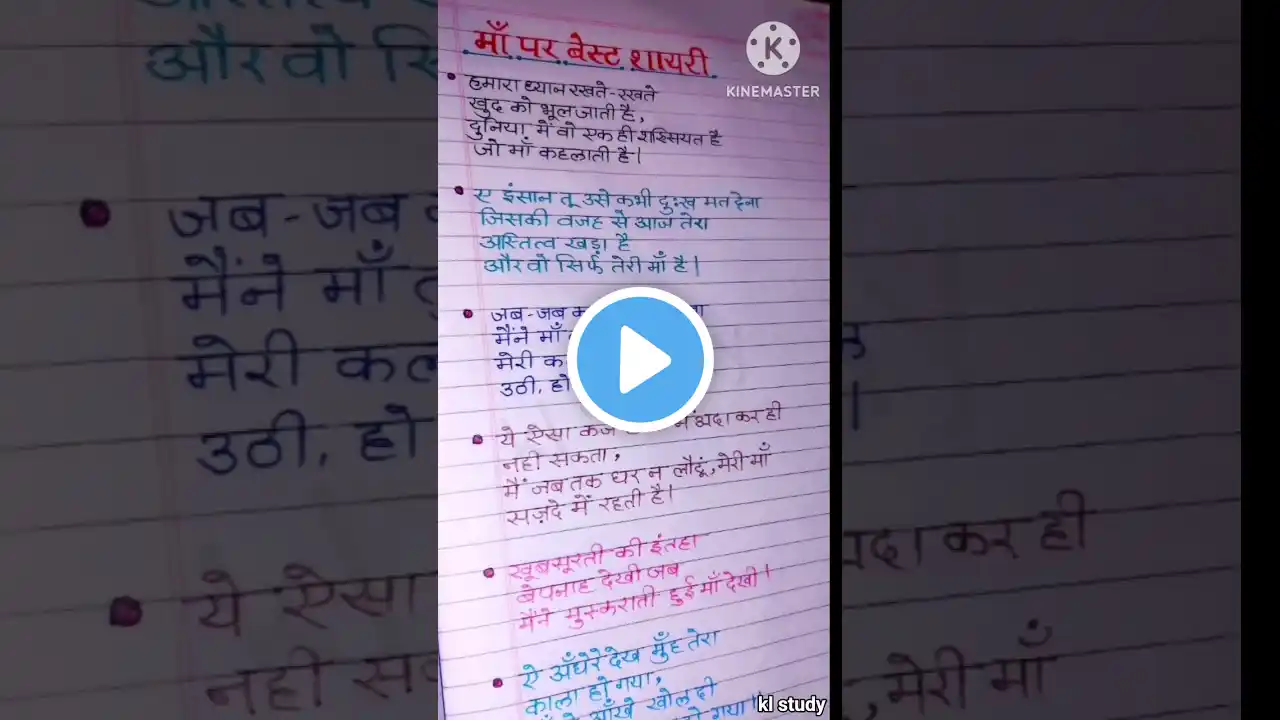 माँ पर बेस्ट शायरी
KINEMASTER
हमारा ध्यान रखते-रखते
खुद को भूल जाती है,
दुनिया में वो एक ही शख्सियत है
जो माँ कहलाती है।
ए इंसान तू उसे कभी दुःख मत देना
जिसकी वजह से आज तेरा
अस्तित्व खड़ा है
और वो सिर्फ तेरी माँ है।
जब-जब
मैंने माँ
मेरी
उठी, हो
ये ऐसा कर्ज अदा कर ही
नही सकता,
मैं जब तक घर न लौटूं, मेरी माँ
सज़दे में रहती है।
खूबसूरती की इंतहा
बेपनाह देखी जब
मैंने मुस्कराती हुई माँ देखी।
ऐ अँधेरे देख मुँह तेरा
काला हो गया,
आँखे खोल दी
हो गया।
kl study